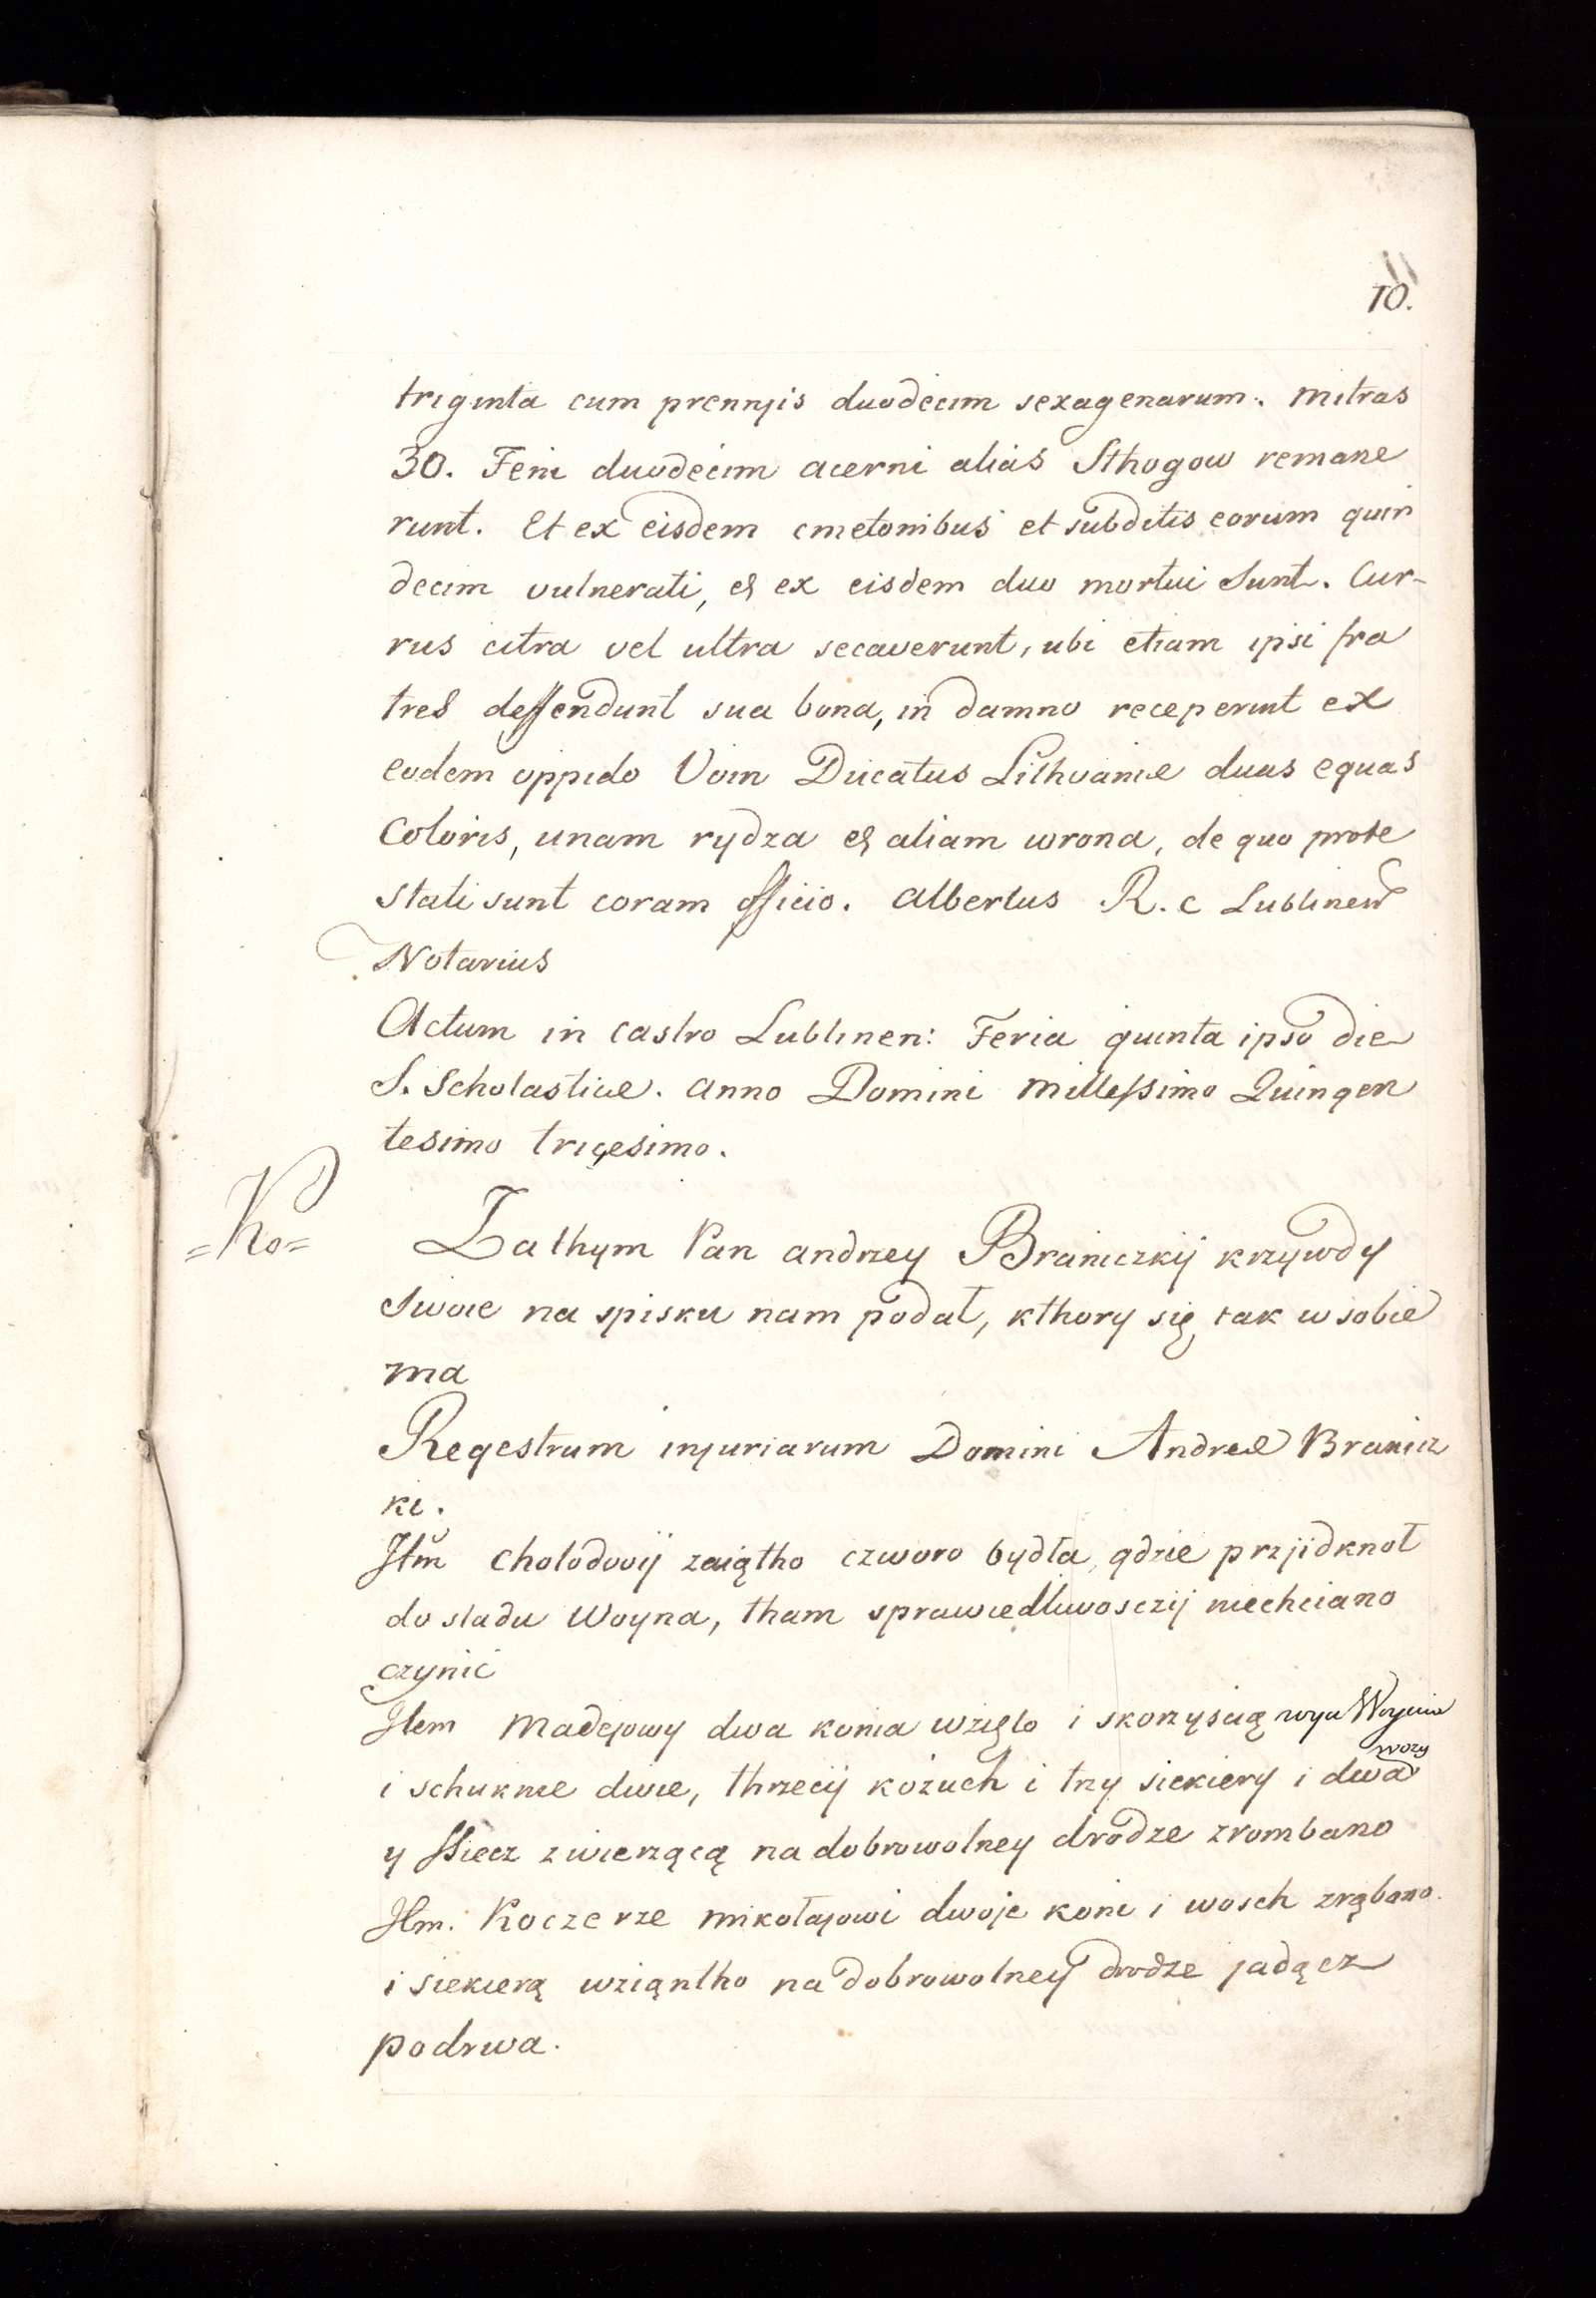 10.
triginta cum prennjis duodecim sexagenarum. mitras
30. Feni duodecim acerni alias Sthogow remane
runt. Et ex eisdem cmetonibus et subditis eorum quin
decim vulnerati, et ex eisdem duo mortui sunt. Cur-
rus citra vel ultra secaverunt, ubi etiam ipsi fra
tres deffendunt sua bona, in damno receperunt ex
eodem oppido Voin Ducatus Lithvaniæ duas equas
Coloris, unam rydza et aliam wrona, de quo prote
stati sunt coram officio. Albertus R. c Lublinen
Notarius
Actum in castro Lublinen: Feria quinta ipso die
S. Scholasticæ. Anno Domini Millessimo Quingen
tesimo tricesimo.
=Ko=
Zathym Pan andrzey Braniczkij krzywdy
swoie na spisku nam podał, kthory się tak w sobie
ma
Regestrum injuriarum Domini Andreæ Branicz
ki.
Itm Cholodovij zaiątho czworo bydła, gdzie przjidknoł
do sladu Woyna, tham sprawiedliwosczij niechciano
czynić
Item Madejowy dwa konia wzięto i skorzyscią Woynia
i schuknie dwie, thrzecij kożuch i trzy siekiery i dwa wozy
y ssiecz zwierzęcą na dobrowolney drodze zrombano
Itm. Koczerze mikołajowi dwoje koni i wosch zrąbano
i siekierą wziąntho na dobrowolney drodze jadącz
podrwa.